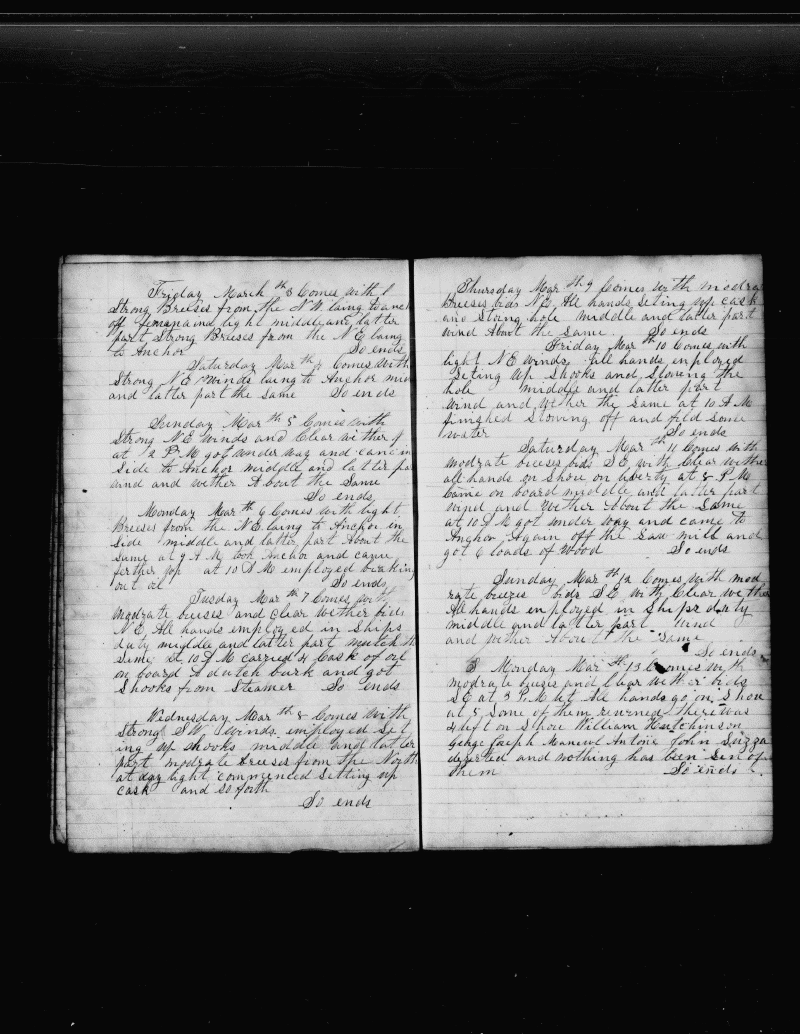 Friday March th 3 Comes with
Strong Breeses from the N W laing to anch
off light middle and latter
part Strong Breeses from the N E laing
to Anchor So ends
Saturday Mar th 4 Comes with
Strong N E Winds laing to Anchor mid
and latter part the Same So ends
Sunday Mar th 5 Comes with
Strong N E Winds and Clear wither
at 2 P M got under way and came in
Side to Anchor middle and latter pa
wind and wether About the Same
So ends
Monday Mar th 6 Comes with light
Breeses from the N E laing to Anchor in
Side middle and latter part About the
Same at 9 A M took Anchor and came
ferther up at 10 A M employed breaking
out oil So ends
Tusday Mar th 7 Comes with
modrate breises and clear wether bids
N E All hands employed in Ships
duty middle and latter part mutch the
Same at 10 A M carried 4 Cask of oil
on board A dutch bark and got
Shooks from Steamer So ends
Wednesday Mar th 8 Comes With
Strong S W winds employed Set
ing up Shooks middle and latter
part modrate breeses from the North
at day light commenced Setting up
cask and so forth
So ends
Thursday Mar th 9 Comes with modra
Breises bids N E All hands seting up cask
and Stoing hole middle and latter part
wind About the same So ends
Friday Mar th 10 Comes with
light N E winds All hands employed
Seting up Shooks and Stowing the
hole middle and latter part
wind and wether the Same at 10 A M
finished Stowing off and fild some
water So ends
Saturday Mar th 11 Comes with
modrate breeses bids S E with Clear wether
all hands on Shore on liberty at 8 P M
Came on board middle and latter part
wind and Wether About the Same
at 10 A M got under way and came to
Anchor Again off the Saw mill and
got 6 loads of Wood So ends
Sunday Mar th 12 Comes with mod
rate breezes bids S E with Clear wether
All hands enployed in Ships duty
middle and latter part Wind
and wether About the Same
So ends
Monday Mar th 13 Comes with
modrate breeses and Clear wether bids
S E at 3 P M let All hands go on Shou
at 5 Some of them reurned there was
4 left on Shore William Hutchinson
George Joseph Manuel Antone John
deserted and nothing has ben Sen of
them So ends